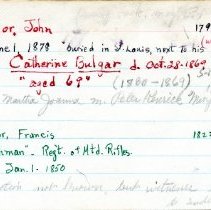 or, John 179
ne 1, 1878 "buried in St. Louis, next to his
Catherine Bulgar d. Oct-28-1869
"aged 69" (1800-1869)
Martha Joanna m. Peter
or, Francis 182
man" - Reg't. of Mt'd. Rifles.
Jan. 1 - 1850
not known, but witness
to